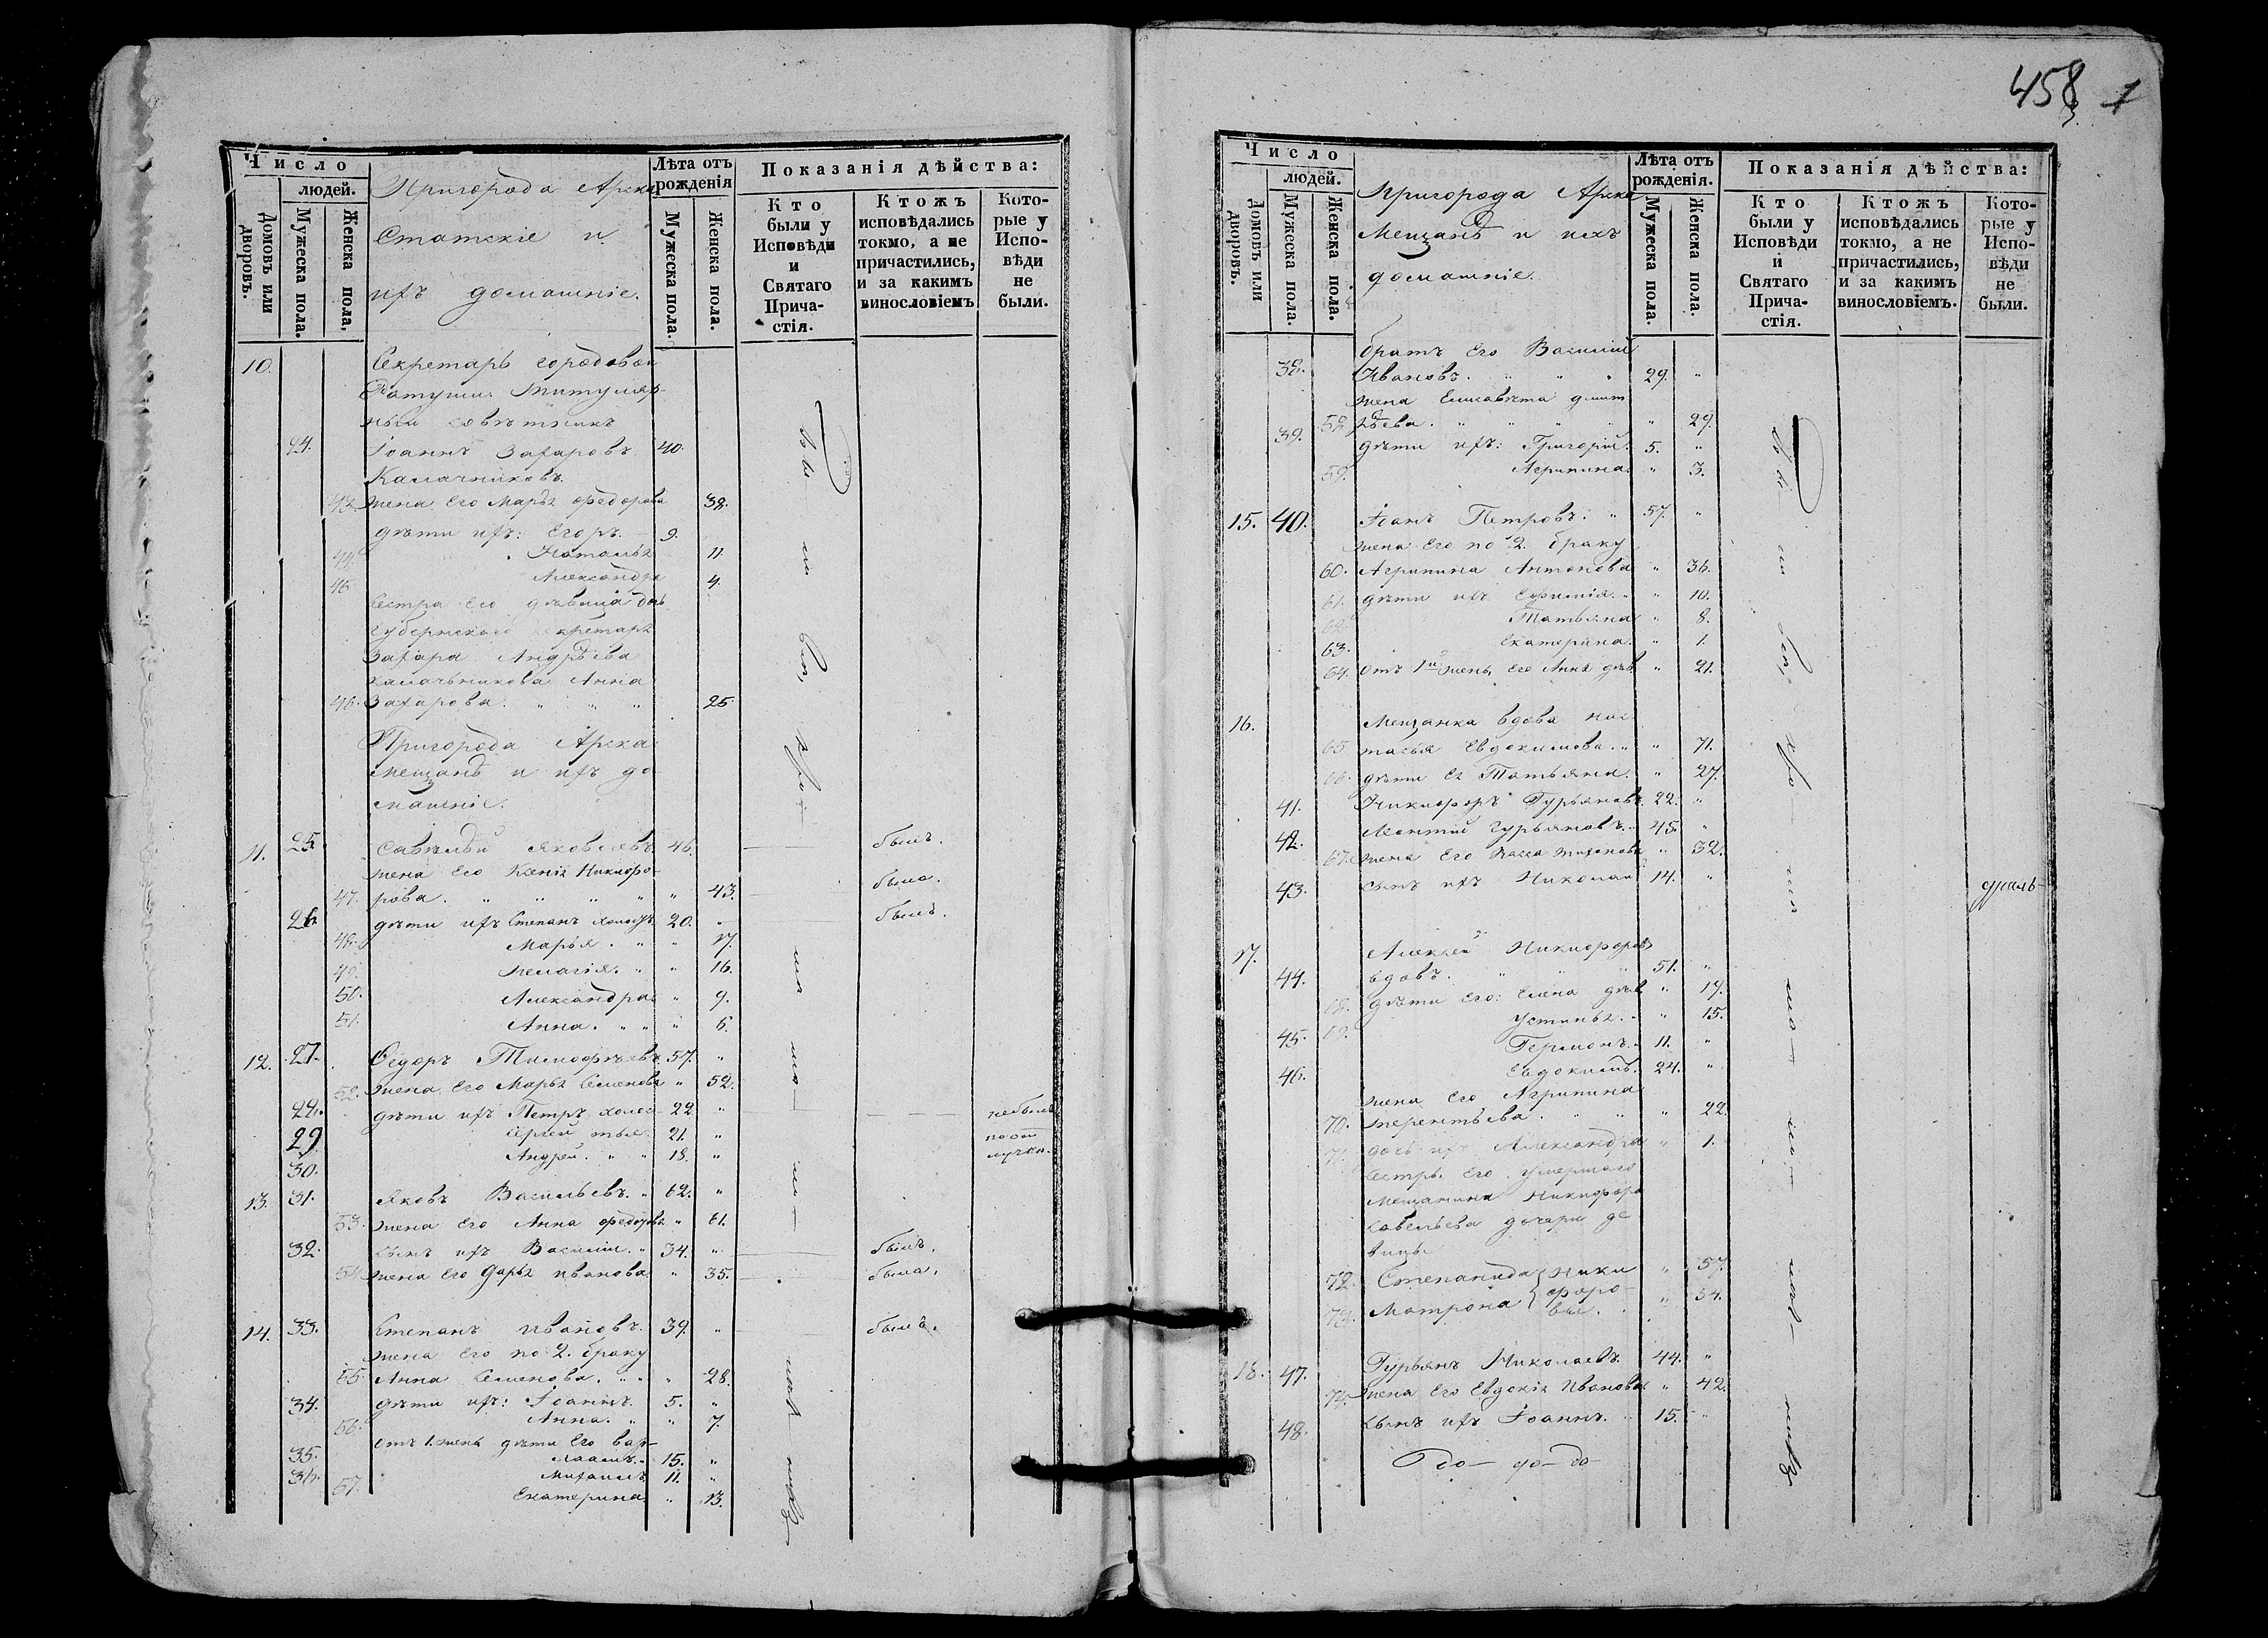 Число
людей.
Домовъ или дворовъ.
Мужеска пола.
Женска пола.
Пригорода Арска
Статскіе и
ихъ домашніе.
Лѣта отъ рожденія
Мужеска пола.
Женска пола.
Показанія дѣйства:
Кто были у Исповѣди и Святаго Причастія.
Ктожъ исповѣдались токмо, а не причастились, и за какимъ винословіемъ.
Которые у Исповѣди не были.
10. Секретарь городовой
Ратуши Титуляр-
ный совѣтникъ
24. Іоаннъ Захаровъ 40.
Калачниковъ.
43. жена Его Марья Федорова 38.
дѣти ихъ: Егоръ. 9.
44. Наталья 11.
45. Александра 4.
Сестра Его дѣвица дочь
Губернскаго секретаря
Захара Андрѣева
Калачникова Анна
46. Захарова. " " " 25
Пригорода Арска
мещанъ и ихъ до-
машніе.
11. 25. Савелъй Яковлевъ 46. былъ.
жена Его Ксенія Никифо-
47. рова. " " " " " 43. была.
26. дѣти ихъ Степанъ холостъ 20. " былъ.
48. Марья. " " 17.
49. Пелагія. " " 16.
50. Александра " 9.
51. Анна. " " " 6.
12. 27. Ѳедоръ Тимофѣевъ 57. "
52. жена Его Марья Семенова " 52.
28. дѣти ихъ Петръ холос- 22 " небылъ
29 Сергей 21. " по от
30. Андрей. " " 18. " лучки.
13. 31. Яковъ Васильевъ. " 62. "
53. жена Его Анна Федорова " 61.
32. сынъ ихъ Василій. " 34. " былъ.
54. жена Его Дарья Иванова " 35. была.
14. 33. Степанъ Ивановъ. 39. " былъ.
жена Его по 2. браку
55. Анна Семенова. " " " 28.
34. дѣти ихъ: Іоаннъ. 5. "
56. Анна. " " 7.
отъ 1. жены дѣти Его Вар-
35. лаамъ. " 15. "
36. Михаилъ 11. "
57. Екатерина. " 13.
458
1
Число
людей.
Домовъ или дворовъ.
Мужеска пола.
Женска пола.
Пригорода Арска
Мещанъ и ихъ
домашніе.
Лѣта отъ рожденія.
Мужеска пола.
Женска пола.
Показанія дѣйства:
Кто были у Исповѣди и Святаго Причастія.
Ктожъ исповѣдались токмо, а не причастились, и за какимъ винословіемъ.
Которые у Исповѣди не были.
братъ Его Василій
38. Ивановъ. " " " 29. "
жена Елисавѣта Дмит
58. рѣева. " " " " " 29.
39. дѣти ихъ: Григорій. 5. "
59. Агрипина " 3.
15. 40. Іоанъ Петровъ. " 57. "
жена Его по 2. браку
60. Агрипина Антонова " 36.
61. дѣти ихъ Евфимія. " " 10.
62. Татьяна " 8.
63. Екатерина. " 1.
64. Отъ 1й жены Его Анна дѣв " 21.
16. Мещанка вдова Нас
65 тасья Евдокимова. " " 71.
66. дѣти Ея Татьяна. " 27.
41. Никифоръ Гурьяновъ. 22. "
42. Леонтій Гурьяновъ. " 45. "
67. жена Его " 32.
43. сынъ ихъ Николай 14. "
17. Алексѣй Никифоровъ
44. вдовъ. " " " 51. "
68. дѣти Его: Елена дѣв " 19.
69. Устинья. " " 15.
45. Германъ. " 11. "
46. Евдокимъ. 24. "
жена Его Агрипина
70. Терентьева. " " " 22.
71. дочь ихъ Александра " 1.
Сестры Его умершаго
Мещанина Никифора
Савельева дочери де
вицы
72. Степанида } Ники " 57.
73. Матрона } форо- " 34.
вы.
18. 47. Гурьянъ Николаевъ. 44. "
74. жена Его Евдокія Иванова " 42.
48. сынъ ихъ Іоаннъ. " 15. "